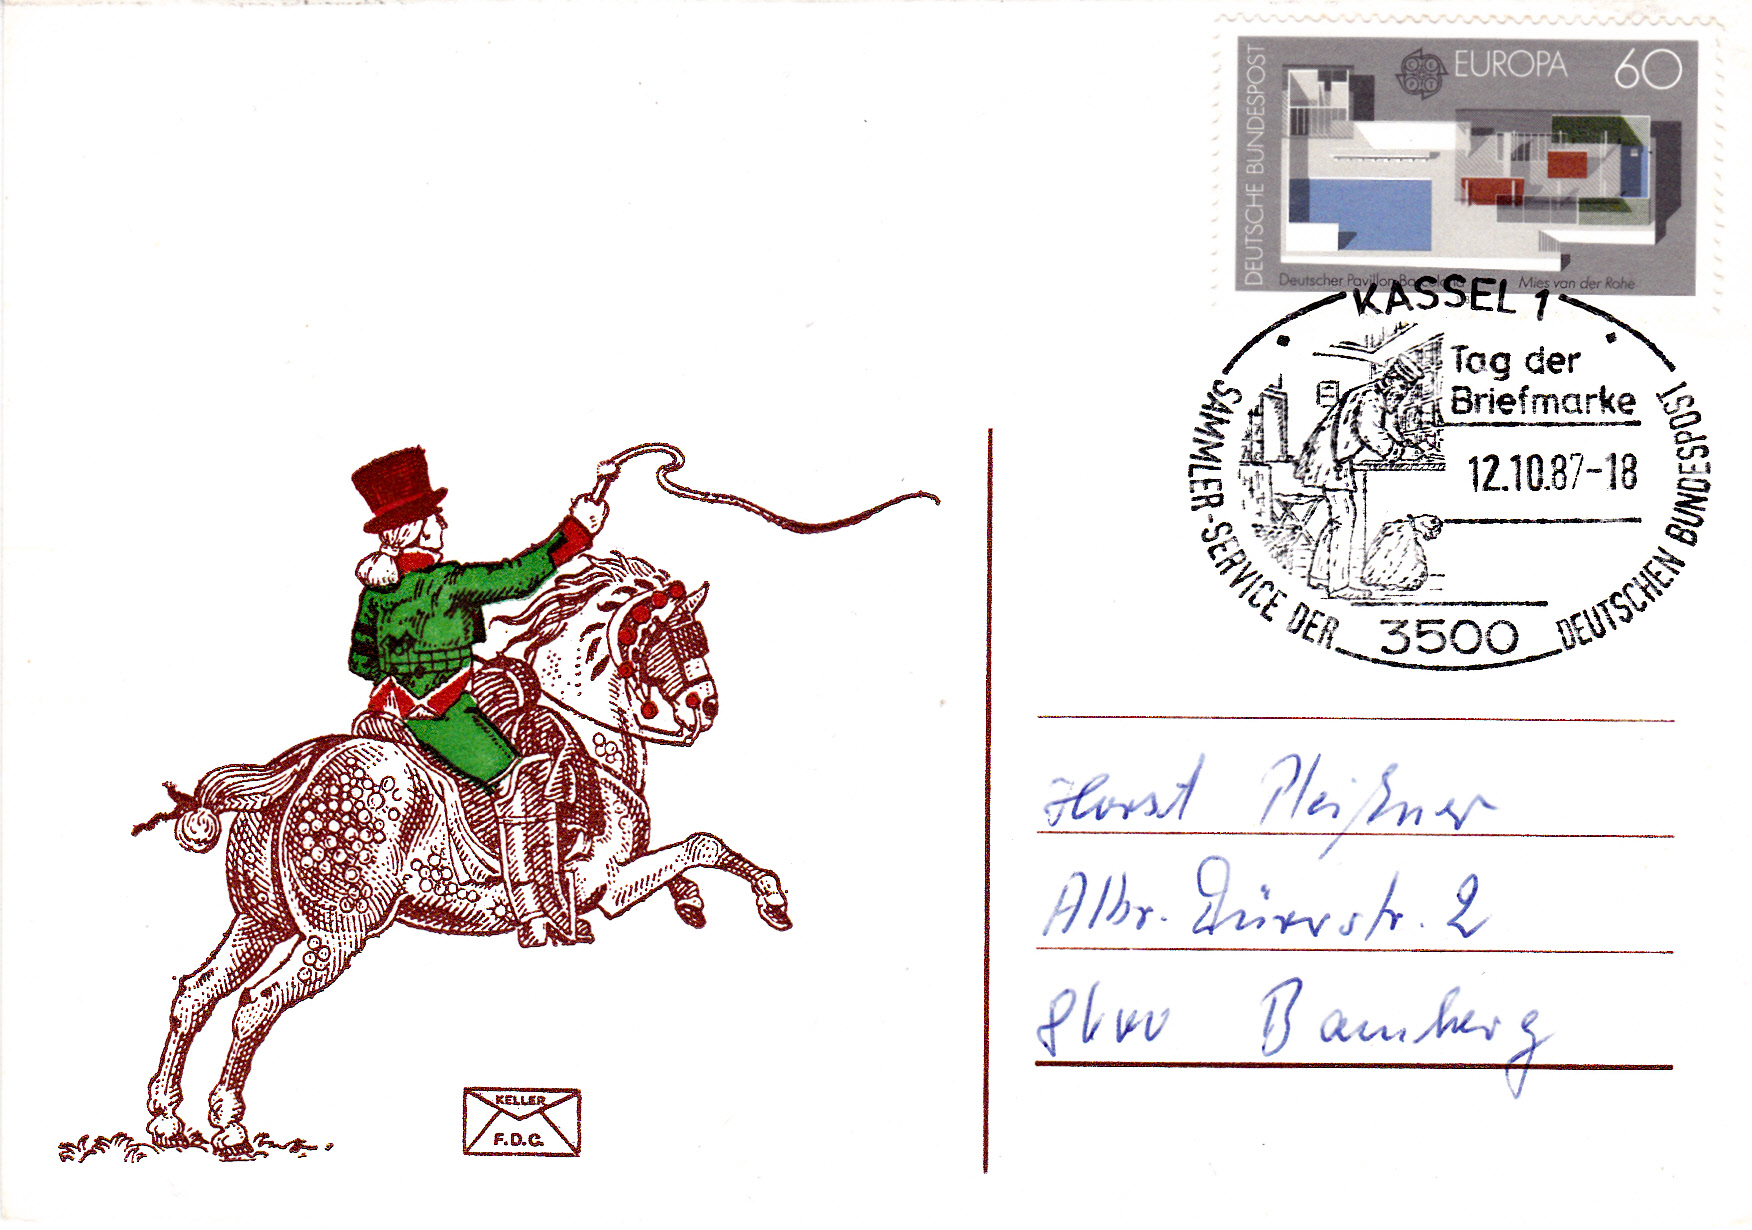 DEUTSCHE BUNDESPOST
EUROPA 60
Deutscher Pavillon Barcelona Mies van der Rohe
KASSEL 1
Tag der
Briefmarke
12.10.87-18
SAMMLER-SERVICE DER DEUTSCHEN BUNDESPOST
3500
Horst Pleißner
Albr. Dürerstr. 2
8600 Bamberg
KELLER
F.D.C.